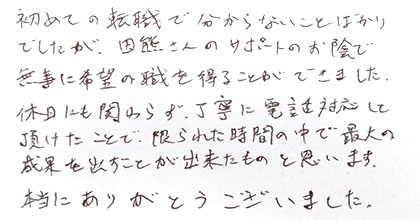 初めての転職で分からないことばかり
でしたが、因熊さんのサポートのお陰で
無事に希望の職を得ることができました。
休日にも関わらず、丁寧に電話対応して
頂けたことで、限られた時間の中で最大の
成果を出すことが出来たものと思います。
本当にありがとうございました。